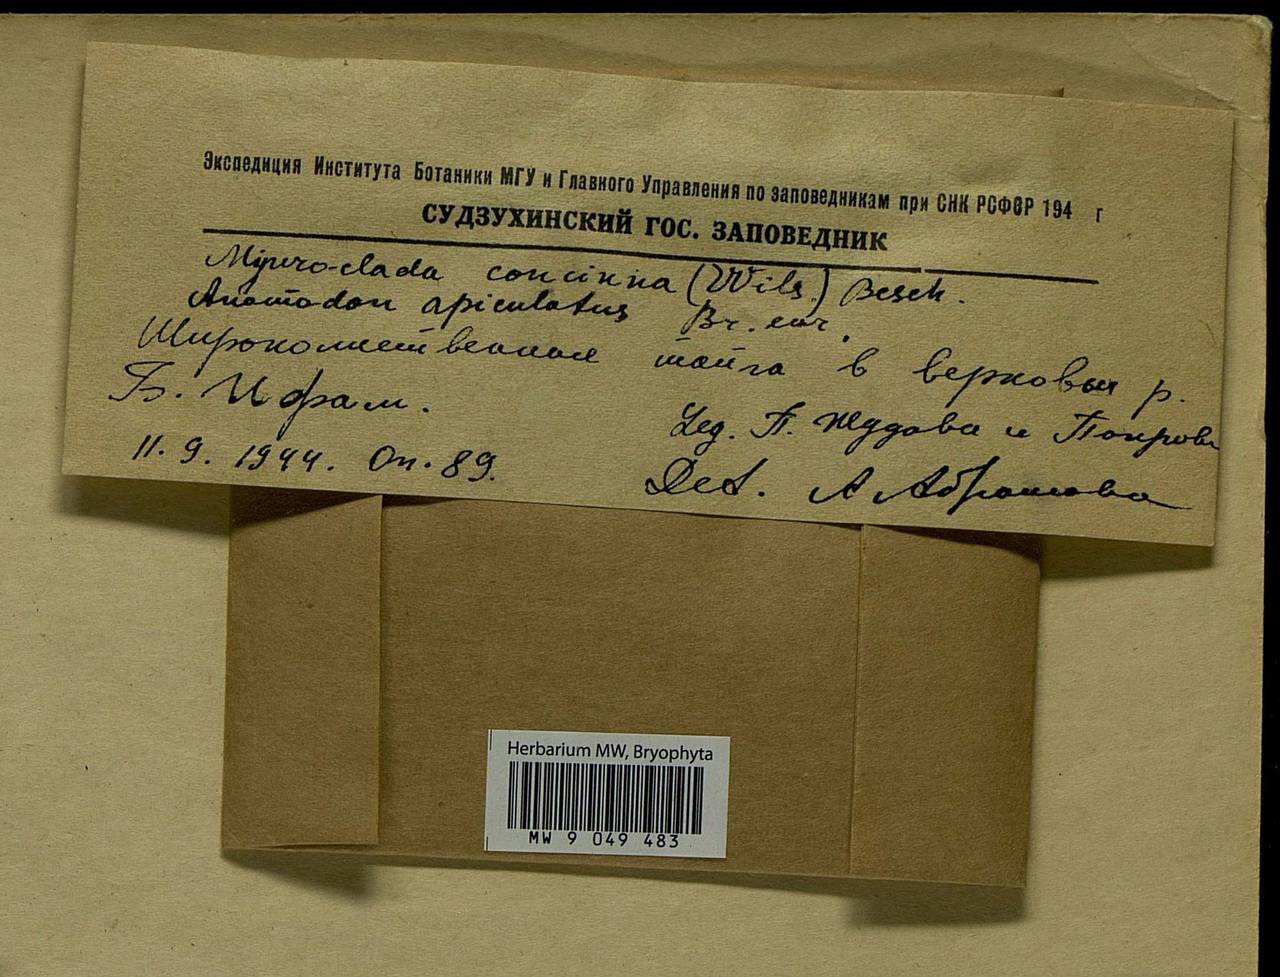 Экспедиция Института Ботаники МГУ и Главного Управления по заповедникам при СНК РСФСР 194 г
СУДЗУХИНСКИЙ ГОС. ЗАПОВЕДНИК
Myuroclada concinna (Wils.) Besch.
Anomodon apiculatus Br. eur.
Широколиственная тайга в верховьи р.
Б. Ифрам.
Leg. П. Жудова и Покров
11.9.1944. Оп. 89.
Det. А Абрамова
Herbarium MW, Bryophyta
MW 9 049 483